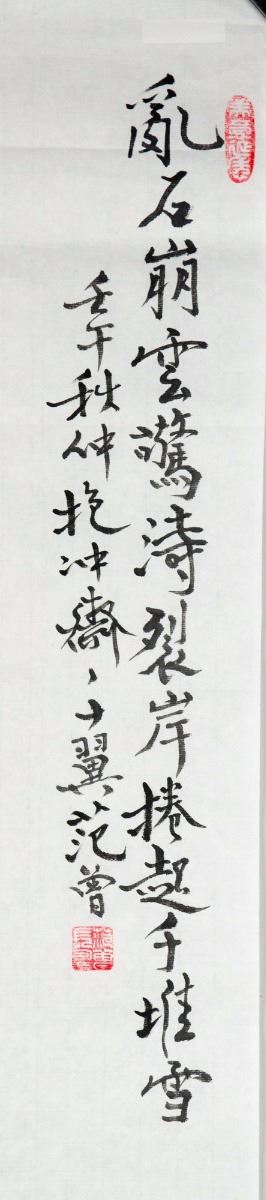 亂石崩雲驚濤裂岸捲起千堆雪
壬午秋仲抱冲齋、十翼范曾